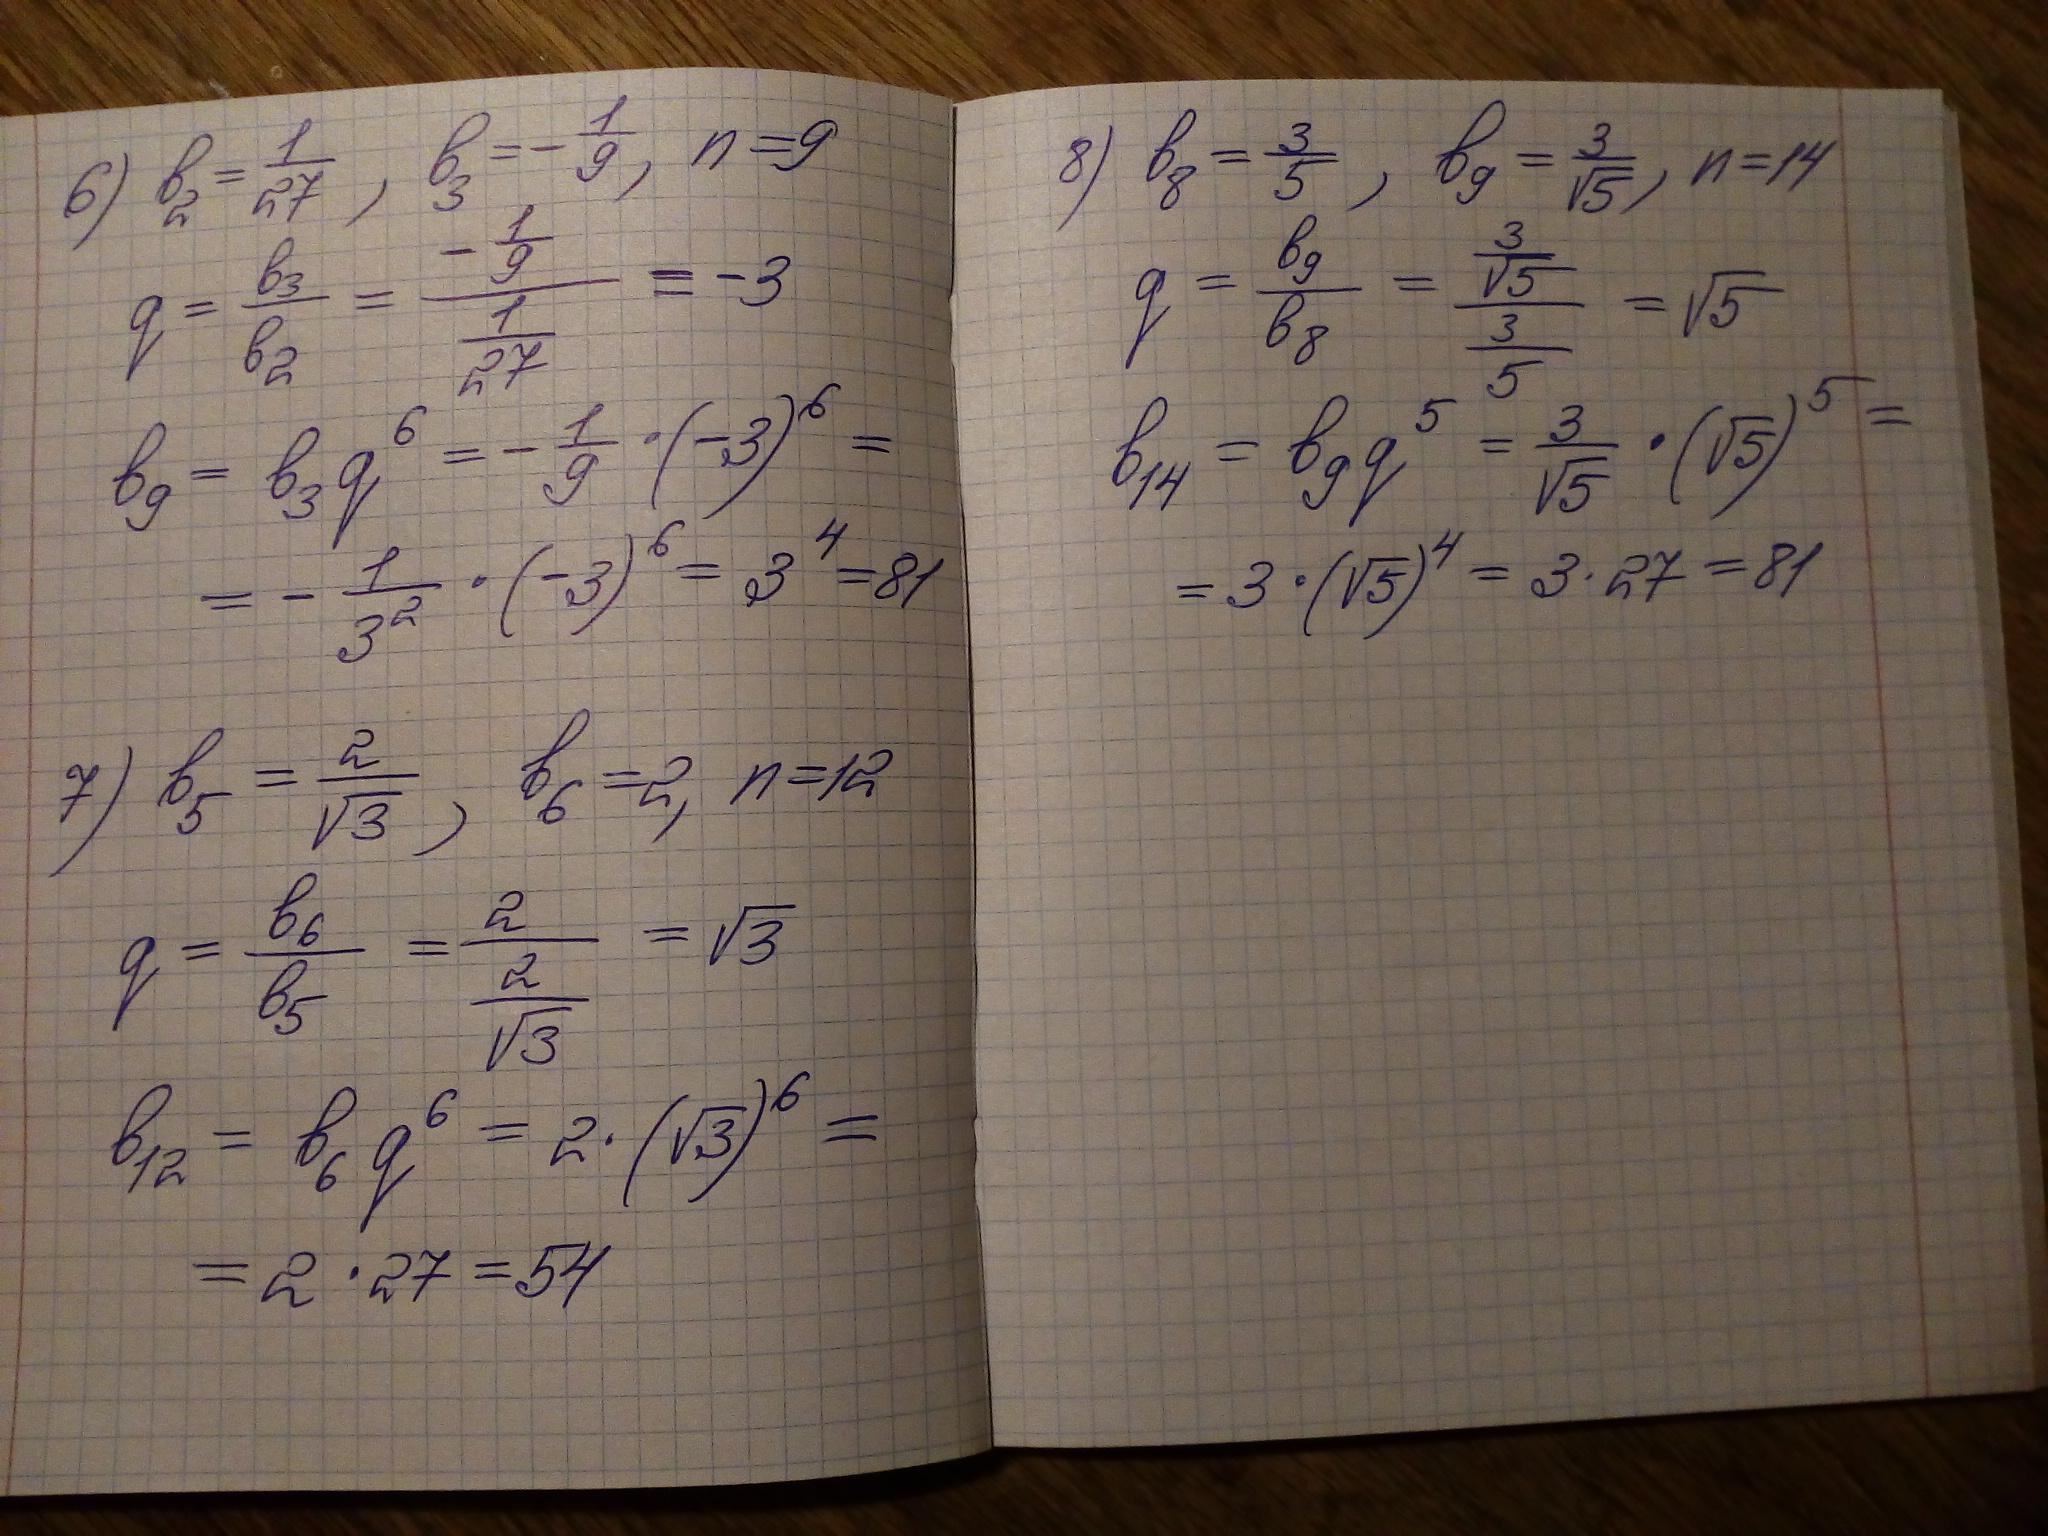 6) b₂ = 1/27, b₃ = -1/9, n = 9
q = b₃/b₂ = (-1/9)/(1/27) = -3
b₉ = b₃q⁶ = -1/9 · (-3)⁶ =
= -1/3² · (-3)⁶ = 3⁴ = 81
7) b₅ = 2/√3, b₆ = 2, n = 12
q = b₆/b₅ = 2/(2/√3) = √3
b₁₂ = b₆q⁶ = 2 · (√3)⁶ =
= 2 · 27 = 54
8) b₈ = 3/5, b₉ = 3/√5, n = 14
q = b₉/b₈ = (3/√5)/(3/5) = √5
b₁₄ = b₉q⁵ = 3/√5 · (√5)⁵ =
= 3 · (√5)⁴ = 3 · 27 = 81